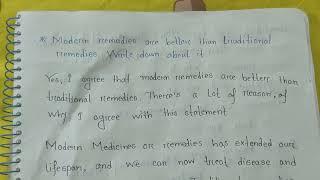 * Modern remedies are better than traditional
remedies. Write down about it
Yes, I agree that modern remedies are better than
traditional remedies. There's a lot of reason, of
why I agree with this statement
Modern Medicines or remedies has extended our
lifespan, and we can now treat disease and